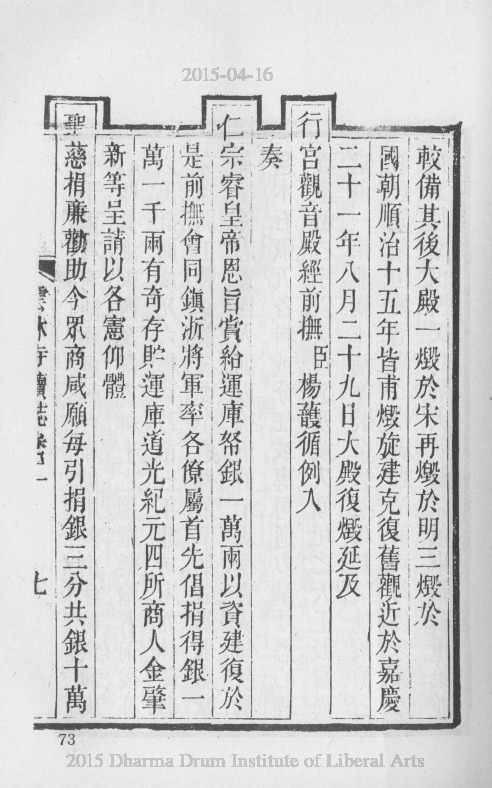 2015-04-16
較備其後大殿一燬於宋再燬於明三燬於
國朝順治十五年皆甫燬旋建克復舊觀近於嘉慶
二十一年八月二十九日大殿復燬延及
行宮觀音殿經前撫臣楊頀循例入
奏
仁宗睿皇帝恩旨賞給運庫帑銀一萬兩以資建復於
是前撫會同鎮浙將軍率各僚屬首先倡捐得銀一
萬一千兩有奇存貯運庫道光紀元四所商人金肇
新等呈請以各憲仰體
聖慈捐廉勸助今眾商咸願每引捐銀三分共銀十萬
雲林寺續志卷 七
73
2015 Dharma Drum Institute of Liberal Arts